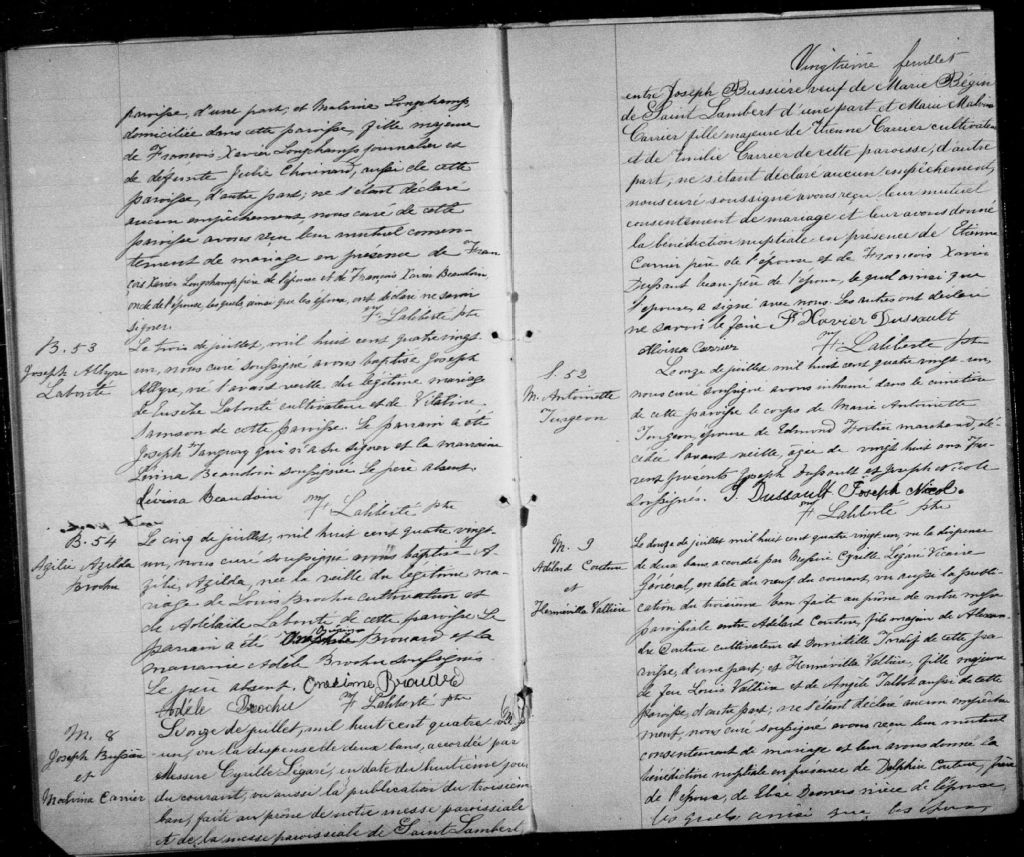 paroisse, d'une part, et Malvina Longchamp,
domiciliée dans cette paroisse, fille majeure
de François Xavier Longchamp journalier et
de défunte Julie Chouinard, aussi de cette
paroisse, d'autre part; ne s'étant déclaré
aucun empêchement, nous curé de cette
paroisse avons reçu leur mutuel consen-
tement de mariage en présence de Fran
çois Xavier Longchamp, père de l'épouse et de François Xavier Beaudoin
oncle de l'épouse, lesquels, ainsi que les époux, ont déclaré ne savoir
signer.
F. Laliberté ptre
B. 53
Joseph Altyre
Labonté
Le trois de juillet, mil huit cent quatre vingt
un, nous curé soussigné avons baptisé Joseph
Altyre, né l'avant veille, du légitime mariage
de Eusèbe Labonté cultivateur et de Vitaline
Samson de cette paroisse. Le parrain a été
Joseph Tanguay qui n'a su signer et la marraine
Lévina Beaudoin soussignée. Le père absent.
Lévina Beaudoin
F. Laliberté ptre
B. 54
Azilie Azilda
Brochu
Le cinq de juillet, mil huit cent quatre vingt-
un, nous curé soussigné avons baptisé A
zilie, Azilda, née la veille du légitime ma-
riage de Louis Brochu cultivateur et
de Adelaide Labonté de cette paroisse. Le
parrain a été Onézime Brouard et la
marraine Adèle Brochu soussignés.
Le père absent. Onézime
Adèle Brochu F. Laliberté ptre
M. 8
Joseph Bussière
et
Malvina Carrier
Le onze de juillet, mil huit cent quatre vingt
un, vu la dispense de deux bans, accordée par
Messire Cyrille Légaré, en date du huitième jour
du courant, vu aussi la publication du troisième
ban, faite au prône de notre messe paroissiale
et de la messe paroissiale de Saint-Lambert,
Vingtième feuillet
entre Joseph Bussière veuf de Marie Bégin
de Saint Lambert d'une part et Marie Malvina
Carrier fille majeure de Etienne Carrier cultivateur
et de Emilie Carrier de cette paroisse, d'autre
part; ne s'étant déclaré aucun empêchement,
nous curé soussigné avons reçu leur mutuel
consentement de mariage et leur avons donné
la bénédiction nuptiale en présence de Etienne
Carrier père de l'épouse et de François Xavier
Dussault beau-père de l'époux, lequel ainsi que
l'épouse, a signé avec nous. Les autres ont déclaré
ne savoir le faire F Xavier Dussault
Carrier F. Laliberté ptre
S. 52
M. Antoinette
Turgeon
Le onze de juillet mil huit cent quatre vingt-un,
nous curé soussigné avons inhumé dans le cimetière
de cette paroisse le corps de Marie Antoinette
Turgeon épouse de Edmond Fortier marchand, dé-
cédée l'avant veille, agée de vingt huit ans. Fu-
rent présents Joseph Dussault et Joseph Nicole
soussignés. J. Dussault Joseph Nicol.
F. Laliberté ptre
M. 9
Adélard Couture
et
Herméville Vallière
Le douze de juillet mil huit cent quatre vingt un, vu la dispense
de deux bans accordée par Messire Cyrille Légaré Vicaire
Général, en date du neuf du courant, vu aussi la publi-
cation du troisième ban faite au prône de notre messe
paroissiale entre Adélard Couture, fils majeur de Alexan-
dre Couture cultivateur et Domitille de cette pa-
roisse, d'une part; et Herméville Vallière, fille majeure
de feu Louis Vallière et de Angèle Talbot aussi de cette
paroisse, d'autre part; ne s'étant déclaré aucun empêche-
ment, nous curé soussigné avons reçu leur mutuel
consentement de mariage et leur avons donné la
bénédiction nuptiale en présence de Delphin Couture, frère
de l'époux, de Elise Demers nièce de l'épouse,
les quels ainsi que les époux,